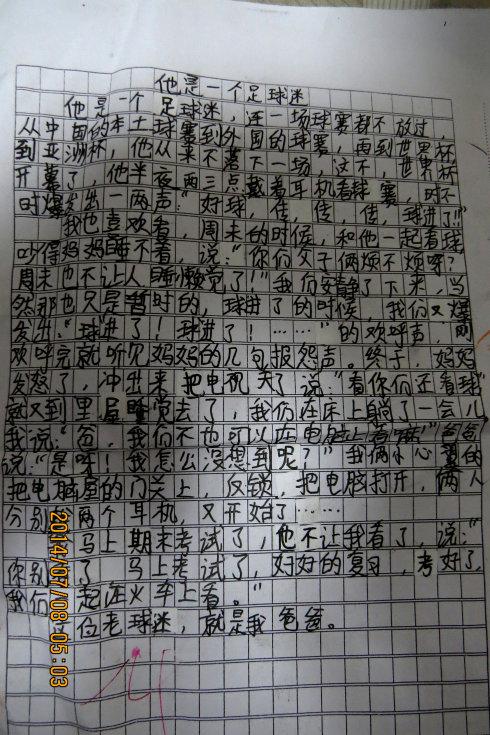 他是一个足球迷
他是一个足球迷，连一场球赛都不放过，
从中国的本土球赛到外国的球赛，再到世界杯
到亚洲杯，他从来不落下一场，这不，世界杯
开幕了，他半夜两三点戴着耳机看球赛，时不
时爆发出一两声："好球，传，传，传，球进了!!"
我也喜欢看，周末的时候，和他一起看球
吵得妈妈睡不着，说："你们父子俩烦不烦呀？
周末也不让人睡懒觉了！"我们安静了下来，当
然那也只是暂时的，球进了的时候，我们又爆
发出："球进了！球进了！……"的欢呼声，刚
欢呼完就听见妈妈的几句报怨声。终于，妈妈
发怒了，冲出来，把电视关了说："看你们还看球"
就又到里屋睡觉去了，我们在床上躺了一会儿
我说："爸，我们不也可以在电脑上看嘛"爸爸
说："是呀！我怎么没想到呢？"我俩小心翼的
把电脑屋的门关上，反锁，把电脑打开，两人
分别 两个耳机，又开始了……
马上期末考试了，他不让我看了，说："
你别 了 马上考试了，好好的复习，考好了，
我们一起在火车上看。"
这位老球迷，就是我爸爸。
2014/07/08 05:03